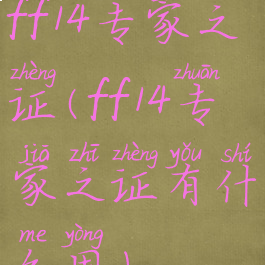 ff14专家之
zhèng zhuān
证(ff14专
jiā zhī zhèng yǒu shí
家之证有什
me yòng
么用)